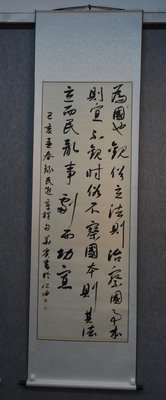 為國也觀俗立法則治察國事本
則宜不觀時俗不察國本則其法
立而民亂事劇而功寡
己亥孟春